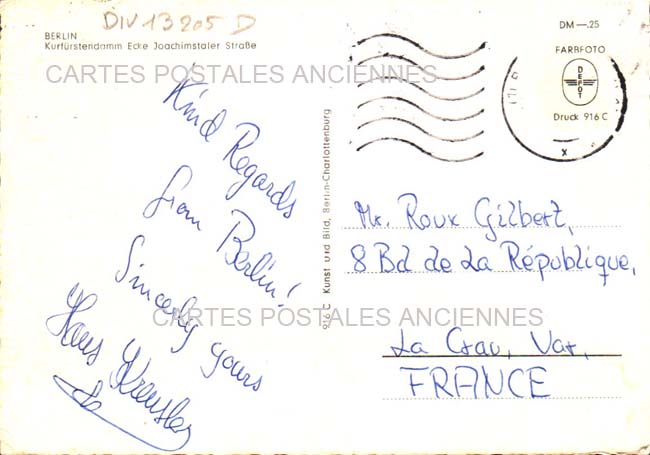 DIV 13205 D
BERLIN
Kurfürstendamm Ecke Joachimstaler Straße
DM —.25
FARBFOTO
DEFOT
Druck 916 C
CARTES POSTALES ANCIENNES
Kind Regards
from Berlin!
Sincerely yours
Hans
916 C Kunst und Bild, Berlin-Charlottenburg
Mr. Roux Gilbert,
8 Bd de La République,
La Crau, Var,
FRANCE
CARTES POSTALES ANCIENNES